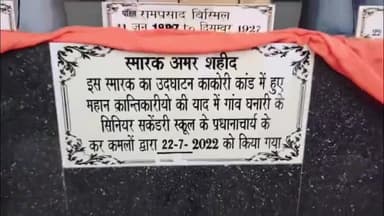 पंडित रामप्रसाद बिस्मिल
11 जून 1897 19 दिसम्बर 1927
स्मारक अमर शहीद
इस स्मारक का उदघाटन काकोरी कांड में हुए
महान कान्तिकारीयो की याद में गांव घनारी के
सिनियर सकेंडरी स्कूल के प्रधानाचार्य के
कर कमलों द्वारा 22-7-2022 को किया गया